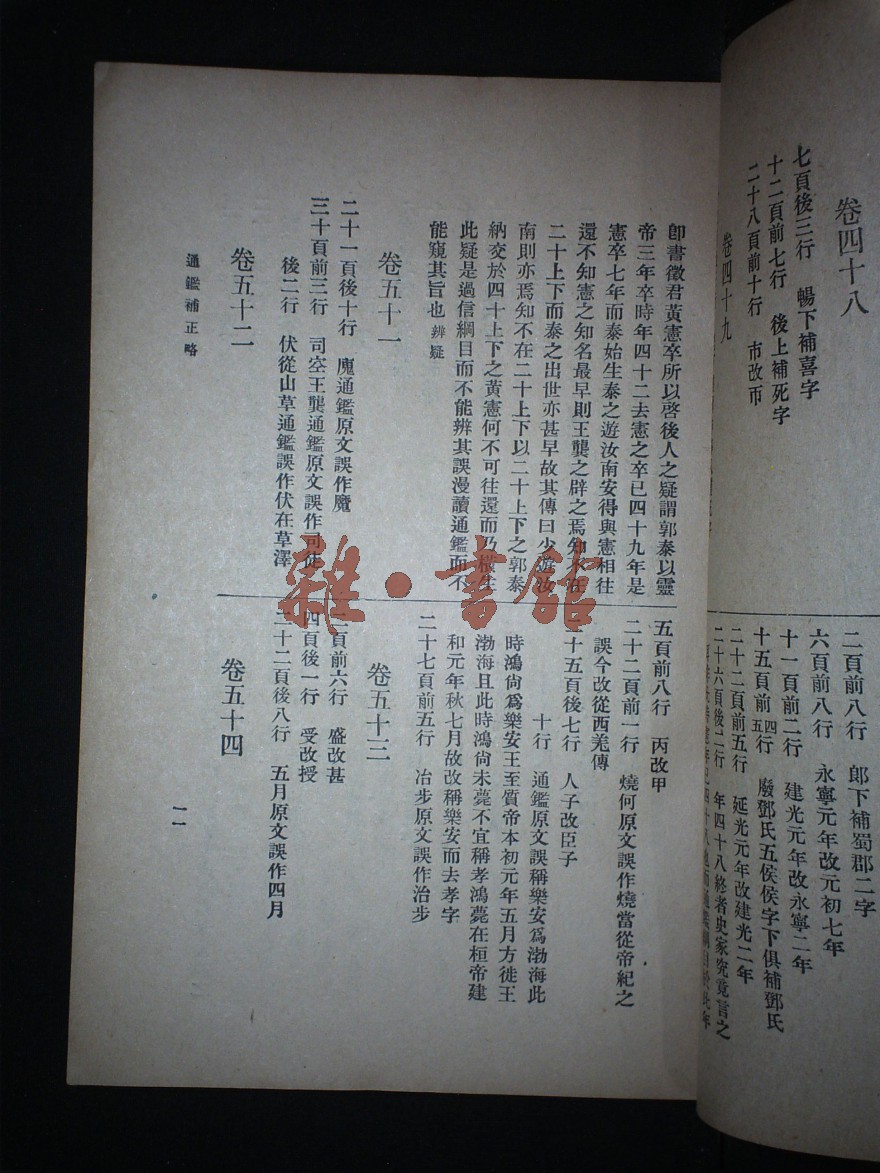 卷四十八
七頁後三行　暢下補喜字
十二頁前七行　後上補死字
二十八頁前十行　市改帀
卷四十九
二頁前八行　郎下補蜀郡二字
六頁前八行　永寧元年改元初七年
十一頁前二行　建光元年改永寧二年
十五頁前四五行　廢鄧氏五侯侯字下俱補鄧氏
二十二頁前五行　延光元年改建光二年
二十六頁後二行　年四十八終者史家究竟言之
卽書徵君黃憲卒所以啓後人之疑謂郭泰以靈
帝三年卒時年四十二去憲之卒已四十九年是
憲卒七年而泰始生泰之遊汝南安得與憲相往
還不知憲之知名最早則王龔之辟之焉知不在
二十上下而泰之出世亦甚早故其傳曰少遊汝
南則亦焉知不在二十上下以二十上下之郭泰
納交於四十上下之黃憲何不可往還而乃橫生
此疑是過信綱目而不能辨其誤漫讀通鑑而不
能窺其旨也辨疑
卷五十一
二十一頁後十行　廆通鑑原文誤作魔
三十頁前三行　司空王龔通鑑原文誤作司徒
後二行　伏從山草通鑑誤作伏在草澤
卷五十二
五頁前八行　丙改甲
二十二頁前一行　燒何原文誤作燒當從帝紀之
誤今改從西羌傳
二十五頁後七行　人子改臣子
十行　通鑑原文誤稱樂安爲渤海此
時鴻尙爲樂安王至質帝本初元年五月方徙王
渤海且此時鴻尙未薨不宜稱孝鴻薨在桓帝建
和元年秋七月故改稱樂安而去孝字
二十七頁前五行　冶步原文誤作治步
卷五十三
二頁前六行　盛改甚
四頁後一行　受改授
二十二頁後八行　五月原文誤作四月
卷五十四
通鑑補正略
一一
雜·書館